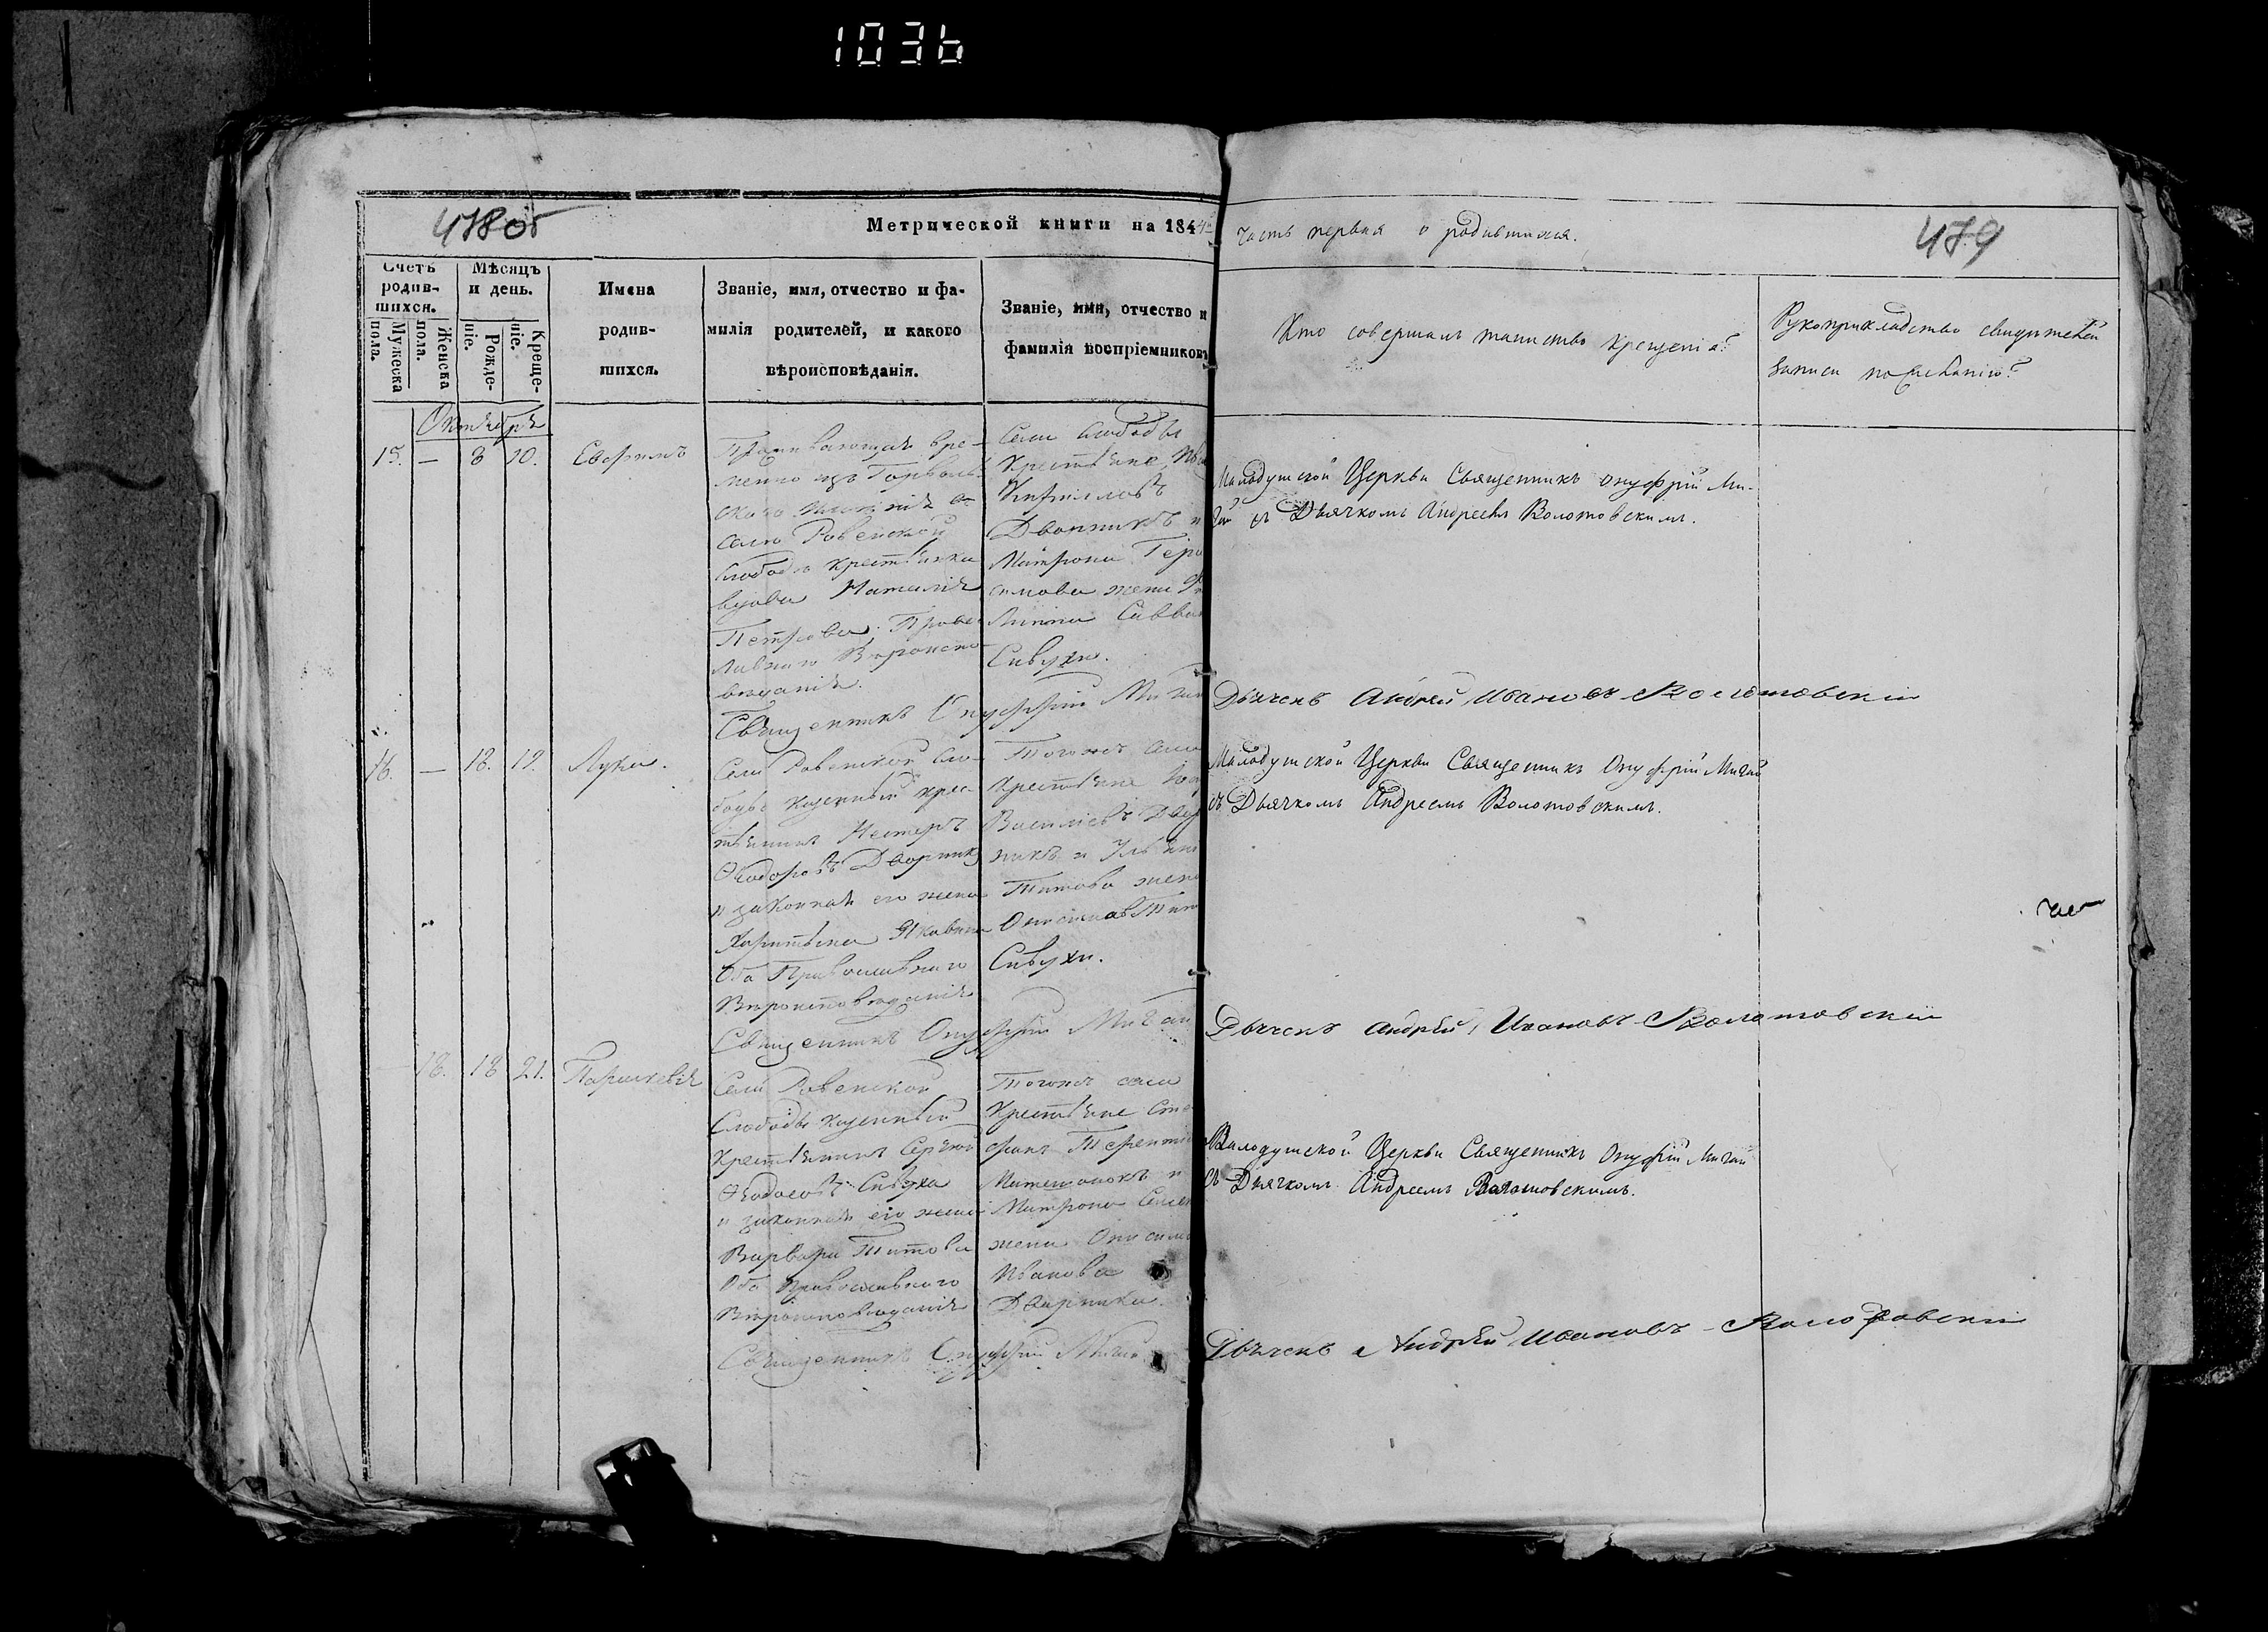 1036
478об
Метрической книги на 184
часть первая о родившихся.
479
Счетъ родив-шихся.
Мужеска пола.
Женска пола.
Мѣсяцъ и день.
Рожде-ніе.
Креще-ніе.
Имена
родив-
шихся.
Званіе, имя, отчество и фа-
милія родителей, и какого
вѣроисповѣданія.
Званіе, имя, отчество и
фамилія воспріемниковъ
Кто совершалъ таинство крещенія?
Рукоприкладство свидѣтелей
записи по желанію?
Октября
15. — 8 10.
Проживающая вре-
менно изъ
селѣ Ровенской
слободѣ крестьянка
вдова Наталія
Петрова. Право
славнаго вѣроиспо
вѣданія.
Села слободы
Крестьяне
Дворникъ и
Матрона
жена
Савви
Сивухи.
Малодушской Церкви Священникъ Онуфрій Ми-
гай съ Дьячкомъ Андреемъ Волотовскимъ.
Священникъ Онуффрій Мигай
Дьячекъ Андрей Ивановъ Волотовскій
16. — 18. 19. Лука.
Села Ровенской Сло-
боды казенный крес-
тьянинъ Нестеръ
Ѳеодоровъ Дворникъ
и законная его жена
Харитина Яковлева
Оба Православнаго
Вѣроисповѣданія
Тогожъ села
Крестьяне
Василіевъ Двор
никъ и
Титова жена
Сивухи.
Малодушской Церкви Священникъ Онуфрій Мигай
съ Дьячкомъ Андреемъ Волотовскимъ.
Священникъ Онуффрій Мигай
Дьячекъ Андрей Ивановъ Волотовскій
18. 18 21. Параскевія
Села Ровенской
Слободы казенный
Крестьянинъ Сергѣй
Ѳеодосовъ Сивуха
и законная его жена
Варвара Титова
Оба православнаго
Вѣроисповѣданія
Тогожъ села
Крестьяне Сте
фанъ Терентіе
и
Матрона
жена Онисима
Иванова
Дворника.
Малодушской Церкви Священникъ Онуфрій Мигай
съ Дьячкомъ Андреемъ Волотовскимъ.
Священникъ Онуффрій Мигай
Дьячекъ Андрей Ивановъ Волотовскій